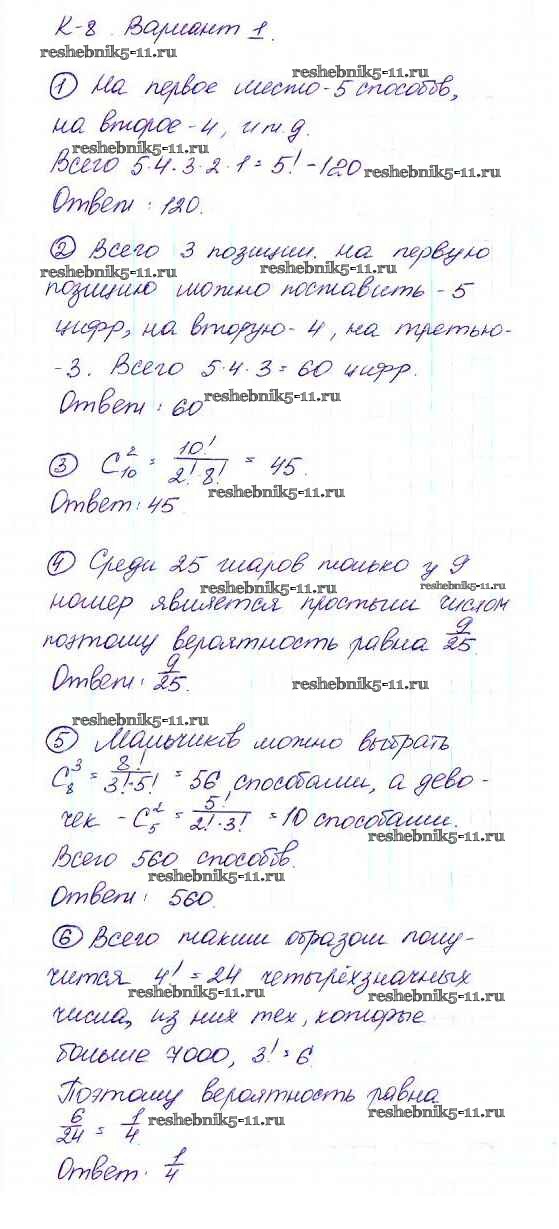 К-8. Вариант 1.
reshebnik5-11.ru
reshebnik5-11.ru
① На первое место - 5 способов,
на второе - 4, и т.д.
reshebnik5-11.ru
Всего 5·4·3·2·1 = 5! - 120
reshebnik5-11.ru
Ответ: 120.
② Всего 3 позиции. На первую
reshebnik5-11.ru
reshebnik5-11.ru
позицию можно поставить - 5
цифр, на вторую - 4, на третью -
- 3. Всего 5·4·3 = 60 цифр.
Ответ: 60
reshebnik5-11.ru
③ C₁₀² = 10!/(2!·8!) = 45.
reshebnik5-11.ru
Ответ: 45
④ Среди 25 шаров только у 9
reshebnik5-11.ru
reshebnik5-11.ru
номер является простым числом
поэтому вероятность равна 9/25.
Ответ: 9/25.
reshebnik5-11.ru
reshebnik5-11.ru
⑤ Мальчиков можно выбрать
C₈³ = 8!/(3!·5!) = 56 способами, а дево-
чек - C₅² = 5!/(2!·3!) = 10 способами.
Всего 560 способов.
reshebnik5-11.ru
Ответ: 560.
⑥ Всего таким образом полу-
чится 4! = 24 четырёхзначных
reshebnik5-11.ru
reshebnik5-11.ru
числа, из них тех, которые
больше 7000, 3! = 6.
Поэтому вероятность равна
6/24 = 1/4
reshebnik5-11.ru
reshebnik5-11.ru
Ответ: 1/4